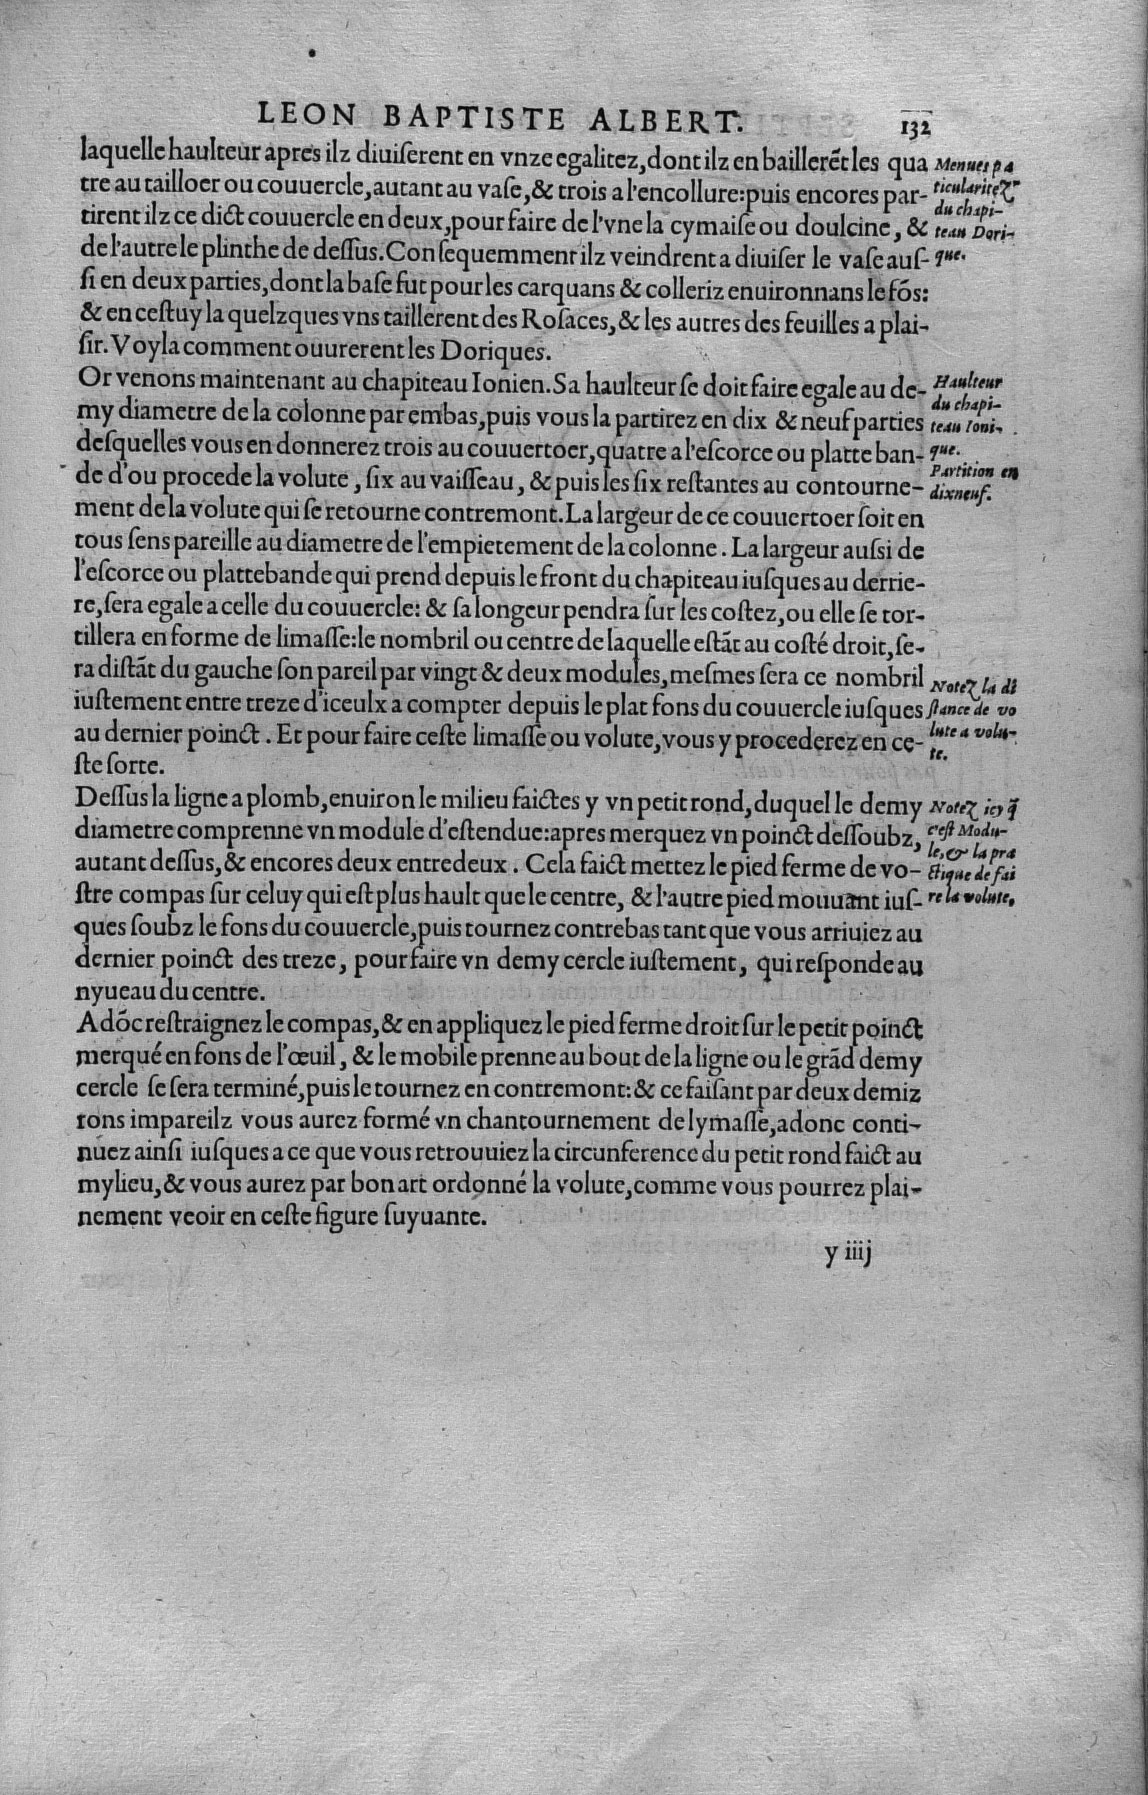 LEON BAPTISTE ALBERT. 132
laquelle haulteur apres ilz diuiſerent en vnze egalitez, dont ilz en baillerẽt les qua
tre au tailloer ou couuercle, autant au vaſe, & trois a l'encollure: puis encores par-
tirent ilz ce dict couuercle en deux, pour faire de l'vne la cymaiſe ou doulcine, &
de l'autre le plinthe de deſſus. Conſequemment ilz veindrent a diuiſer le vaſe auſ-
ſi en deux parties, dont la baſe fut pour les carquans & colleriz enuironnans le fõs:
& en ceſtuy la quelzques vns taillerent des Roſaces, & les autres des feuilles a plai-
ſir. Voyla comment ouurerent les Doriques.
Menues pa
ticularitez
du chapi-
teau Dori-
que.
Or venons maintenant au chapiteau Ionien. Sa haulteur ſe doit faire egale au de-
my diametre de la colonne par embas, puis vous la partirez en dix & neuf parties
deſquelles vous en donnerez trois au couuertoer, quatre a l'eſcorce ou platte ban-
de d'ou procede la volute, ſix au vaiſſeau, & puis les ſix reſtantes au contourne-
ment de la volute qui ſe retourne contremont. La largeur de ce couuertoer ſoit en
tous ſens pareille au diametre de l'empietement de la colonne. La largeur auſsi de
l'eſcorce ou plattebande qui prend depuis le front du chapiteau iuſques au derrie-
re, ſera egale a celle du couuercle: & ſa longeur pendra ſur les coſtez, ou elle ſe tor-
tillera en forme de limaſſe: le nombril ou centre de laquelle eſtãt au coſté droit, ſe-
ra diſtãt du gauche ſon pareil par vingt & deux modules, meſmes ſera ce nombril
iuſtement entre treze d'iceulx a compter depuis le plat fons du couuercle iuſques
au dernier poinct. Et pour faire ceſte limaſſe ou volute, vous y procederez en ce-
ſte ſorte.
Haulteur
du chapi-
teau Ioni-
que.
Partition en
dixneuf.
Notez la di
ſtance de vo
lute a volu-
te.
Deſſus la ligne a plomb, enuiron le milieu faictes y vn petit rond, duquel le demy
diametre comprenne vn module d'eſtendue: apres merquez vn poinct deſſoubz,
autant deſſus, & encores deux entredeux. Cela faict mettez le pied ferme de vo-
ſtre compas ſur celuy qui eſt plus hault que le centre, & l'autre pied mouuant iuſ-
ques ſoubz le fons du couuercle, puis tournez contrebas tant que vous arriuiez au
dernier poinct des treze, pour faire vn demy cercle iuſtement, qui reſponde au
nyueau du centre.
Notez icy q̃
c'eſt Modu-
le, & la pra
ctique de fai
re la volute.
Adõc reſtraignez le compas, & en appliquez le pied ferme droit ſur le petit poinct
merqué en fons de l'œuil, & le mobile prenne au bout de la ligne ou le grãd demy
cercle ſe ſera terminé, puis le tournez en contremont: & ce faiſant par deux demiz
rons impareilz vous aurez formé vn chantournement de lymaſſe, adonc conti-
nuez ainſi iuſques a ce que vous retrouuiez la circunference du petit rond faict au
mylieu, & vous aurez par bon art ordonné la volute, comme vous pourrez plai-
nement veoir en ceſte figure ſuyuante.
y iiij